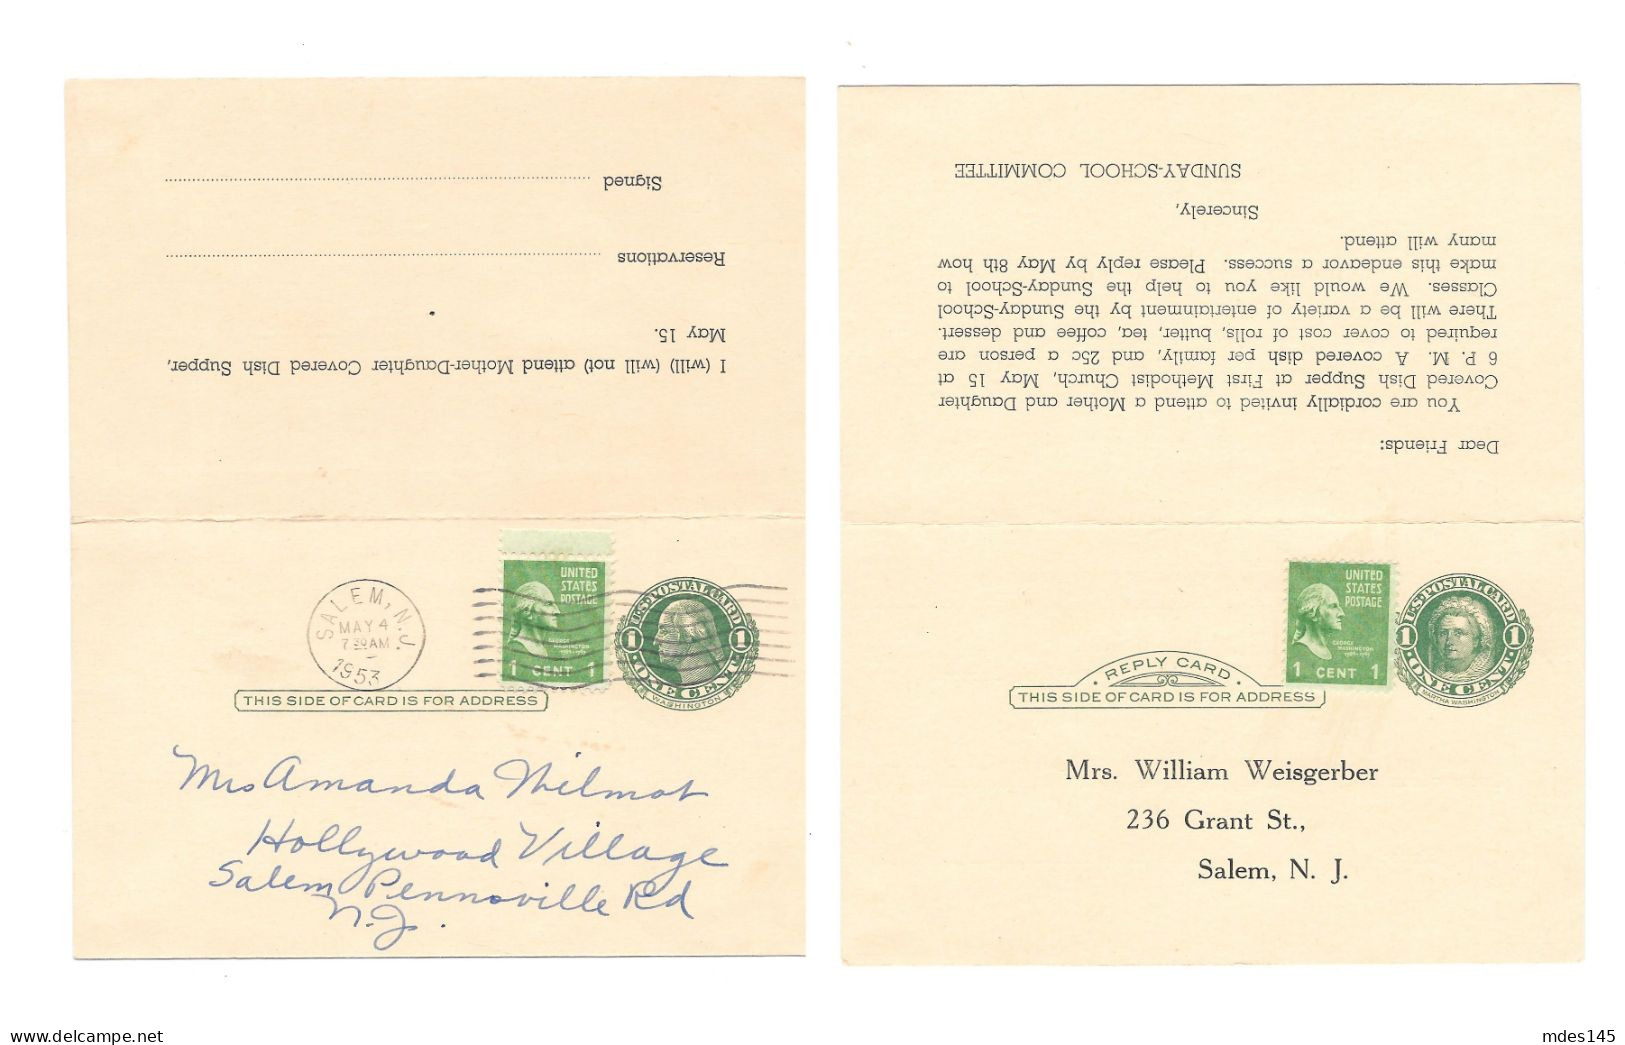 Signed
Reservations
I (will) (will not) attend Mother-Daughter Covered Dish Supper,
May 15.
SALEM, N.J.
MAY 4
7 30 AM
1953
UNITED
STATES
POSTAGE
GEORGE
WASHINGTON
1789-1797
1 CENT 1
U.S. POSTAL CARD
1 1
ONE CENT
WASHINGTON
THIS SIDE OF CARD IS FOR ADDRESS
Mrs Amanda Wilmot
Hollywood Village
Salem Pennsville Rd
N.J.
Dear Friends:
You are cordially invited to attend a Mother and Daughter
Covered Dish Supper at First Methodist Church, May 15 at
6 P. M. A covered dish per family, and 25c a person are
required to cover cost of rolls, butter, tea, coffee and dessert.
There will be a variety of entertainment by the Sunday-School
Classes. We would like you to help the Sunday-School to
make this endeavor a success. Please reply by May 8th how
many will attend.
Sincerely,
SUNDAY-SCHOOL COMMITTEE
UNITED
STATES
POSTAGE
GEORGE
WASHINGTON
1789-1797
1 CENT 1
U.S. POSTAL CARD
1 1
ONE CENT
MARTHA WASHINGTON
REPLY CARD
THIS SIDE OF CARD IS FOR ADDRESS
Mrs. William Weisgerber
236 Grant St.,
Salem, N. J.
www.delcampe.net
mdes145